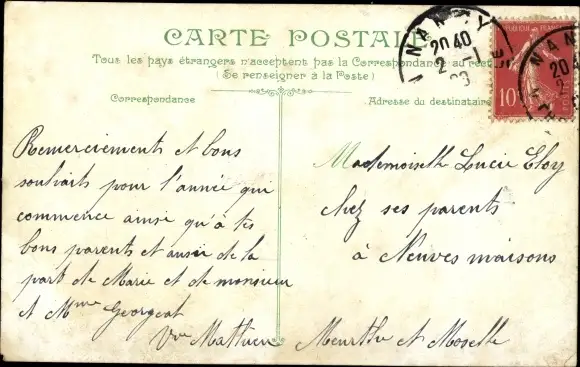 CARTE POSTALE
Tous les pays étrangers n'acceptent pas la Correspondance au recto
(Se renseigner à la Poste)
Correspondance
Adresse du destinataire
NANCY
20 40
2 - 1
NANCY
20 40
10
Remerciements et bons
souhaits pour l'année qui
commence ainsi qu'à tes
bons parents et aussi de la
part de Marie et de monsieur
et Mme Georgeot
Vve Mathieu
Mademoiselle Lucie Eloy
chez ses parents
à Neuves maisons
Meurthe et Moselle